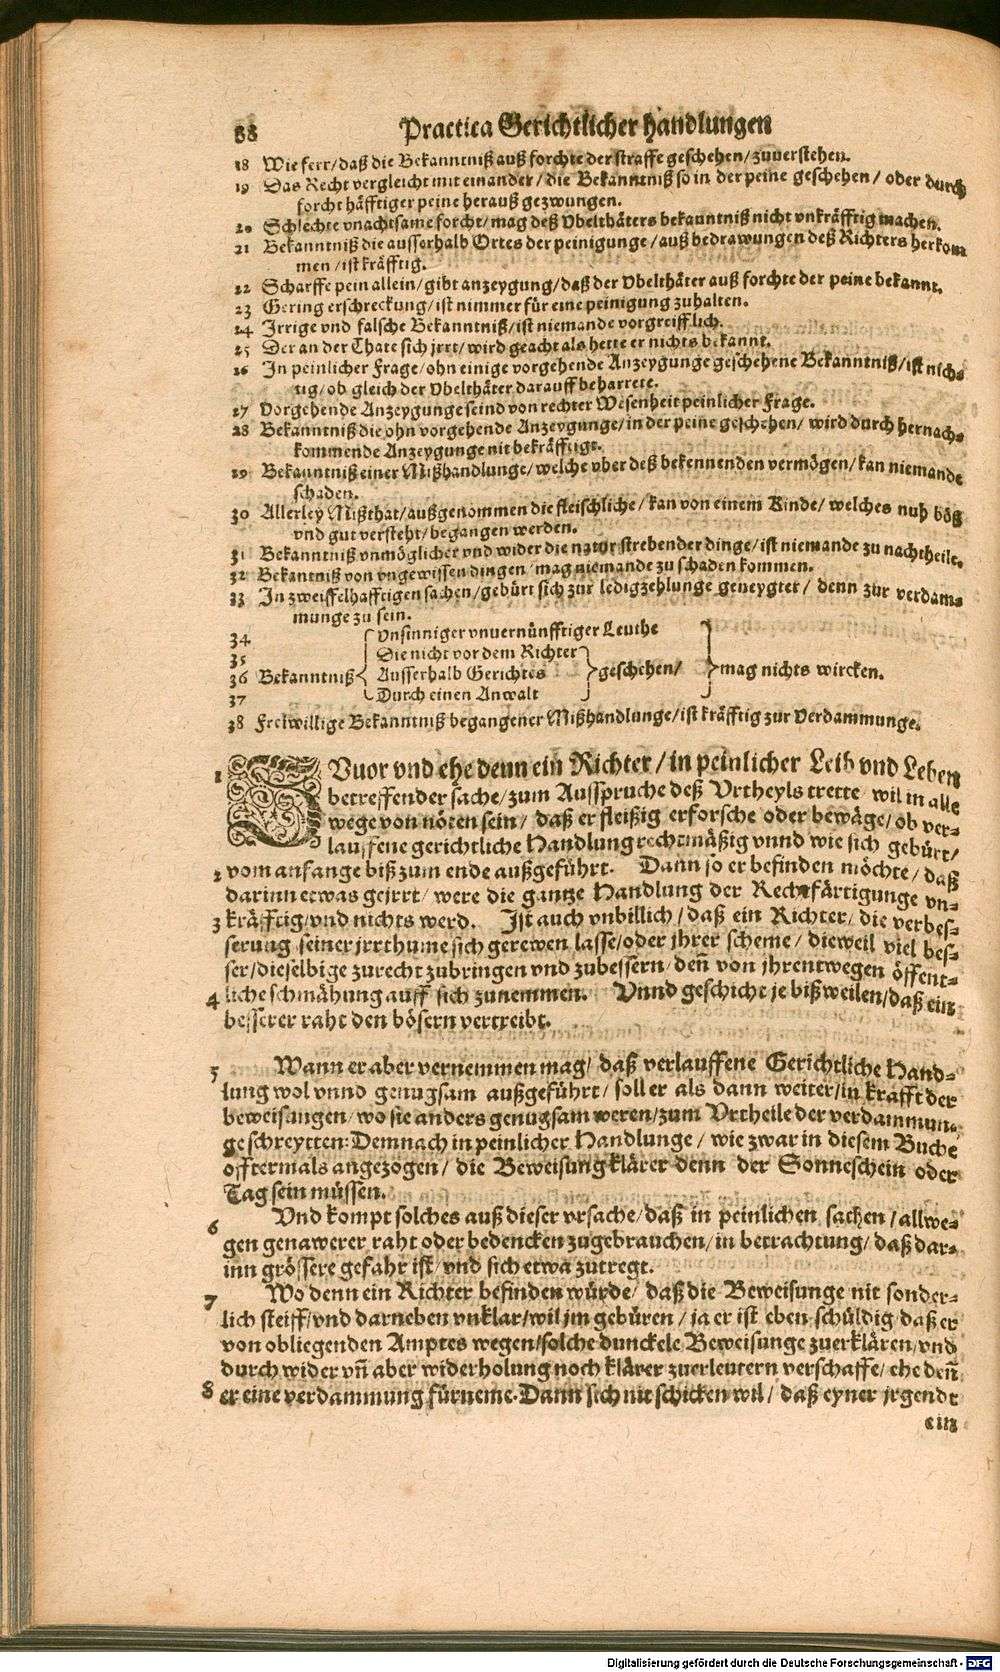 88 Practica Gerichtlicher handlungen
18 Wie ferr/daß die Bekanntniß auß forchte der straffe geschehen/zuuerstehen.
19 Das Recht vergleicht mit einander/die Bekanntniß so in der peine geschehen/ oder durch
forcht häfftiger peine herauß gezwungen.
20 Schlechte vnachtsame forcht/mag deß Vbelthäters bekanntniß nicht vnkräfftig machen.
21 Bekanntniß die ausserhalb Ortes der peinigunge/auß bedrawungen deß Richters herkom
men/ist kräfftig.
22 Scharffe pein allein/gibt anzeygung/daß der Vbelthäter auß forchte der peine bekannt.
23 Gering erschreckung/ist nimmer für eine peinigung zuhalten.
24 Irrige vnd falsche Bekanntniß/ist niemande vorgreifflich.
25 Der an der Thate sich jrrt/wird geacht als hette er nichts bekannt.
26 In peinlicher Frage/ohn einige vorgehende Anzeygunge geschehene Bekanntniß/ist nich-
tig/ob gleich der Vbelthäter darauff beharrete.
27 Vorgehende Anzeygunge seind von rechter Wesenheit peinlicher Frage.
28 Bekanntniß die ohn vorgehende Anzeygunge/in der peine geschehen/ wird durch hernach-
kommende Anzeygunge nit bekräfftigt.
29 Bekanntniß einer Mißhandlunge/welche vber deß bekennenden vermögen/kan niemande
schaden.
30 Allerley Mißthat/außgenommen die fleischliche/kan von einem Kinde/welches nuh böß
vnd gut versteht/begangen werden.
31 Bekanntniß vnmöglicher vnd wider die natur strebender dinge/ist niemande zu nachtheile.
32 Bekantniß von vngewissen dingen/mag niemande zu schaden kommen.
33 In zweiffelhafftigen sachen/gebürt sich zur ledigzehlunge geneygter/ denn zur verdam-
munge zu sein.
34 Vnsinniger vnuernünfftiger Leuthe
35 Die nicht vor dem Richter
36 Bekanntniß Ausserhalb Gerichtes geschehen/ mag nichts wircken.
37 Durch einen Anwalt
38 Freiwillige Bekanntniß begangener Mißhandlunge/ist kräfftig zur Verdammunge.
1 ZVuor vnd ehe denn ein Richter/in peinlicher Leib vnd Leben
betreffender sache/zum Ausspruche deß Vrtheyls trette/ wil in alle
wege von nöten sein/ daß er fleißig erforsche oder bewäge/ob ver-
lauffene gerichtliche Handlung rechtmäßig vnnd wie sich gebürt/
2 vom anfange biß zum ende außgeführt. Dann so er befinden möchte/daß
darinn etwas geirrt/were die gantze Handlung der Rechtfärtigunge vn-
3 kräfftig/vnd nichts werd. Ist auch vnbillich/daß ein Richter/die verbes-
serung seiner jrrthume sich gerewen lasse/oder jhrer scheme/dieweil viel bes-
ser/dieselbige zurecht zubringen vnd zubessern/deñ von jhrentwegen öffent-
4 liche schmähung auff sich zunemmen. Vnnd geschicht je bißweilen/daß ein
besserer raht den bösern vertreibt.
5 Wann er aber vernemmen mag/ daß verlauffene Gerichtliche Hand-
lung wol vnnd genugsam außgeführt/ soll er als dann weiter/in krafft der
beweisungen/wo sie anders genugsam weren/zum Vrtheile der verdammun-
ge schreytten: Demnach in peinlicher Handlunge/ wie zwar in diesem Buche
offtermals angezogen/ die Beweisung klärer denn der Sonneschein oder
Tag sein müssen.
6 Vnd kompt solches auß dieser vrsache/daß in peinlichen sachen/allwe-
gen genawerer raht oder bedencken zugebrauchen/in betrachtung/daß dar-
inn grössere gefahr ist/vnd sich etwa zutregt.
7 Wo denn ein Richter befinden würde/ daß die Beweisunge nit sonder-
lich steiff/vnd darneben vnklar/wil jm gebüren/ ja er ist eben schüldig/daß er
von obliegenden Amptes wegen/solche dunckele Beweisunge zuerklären/vnd
durch wider vñ aber widerholung noch klärer zuerleutern verschaffe/ehe deñ
8 er eine verdammung fürneme. Dann sich nit schicken wil/ daß eyner jrgendt
ein
Digitalisierung gefördert durch die Deutsche Forschungsgemeinschaft - DFG